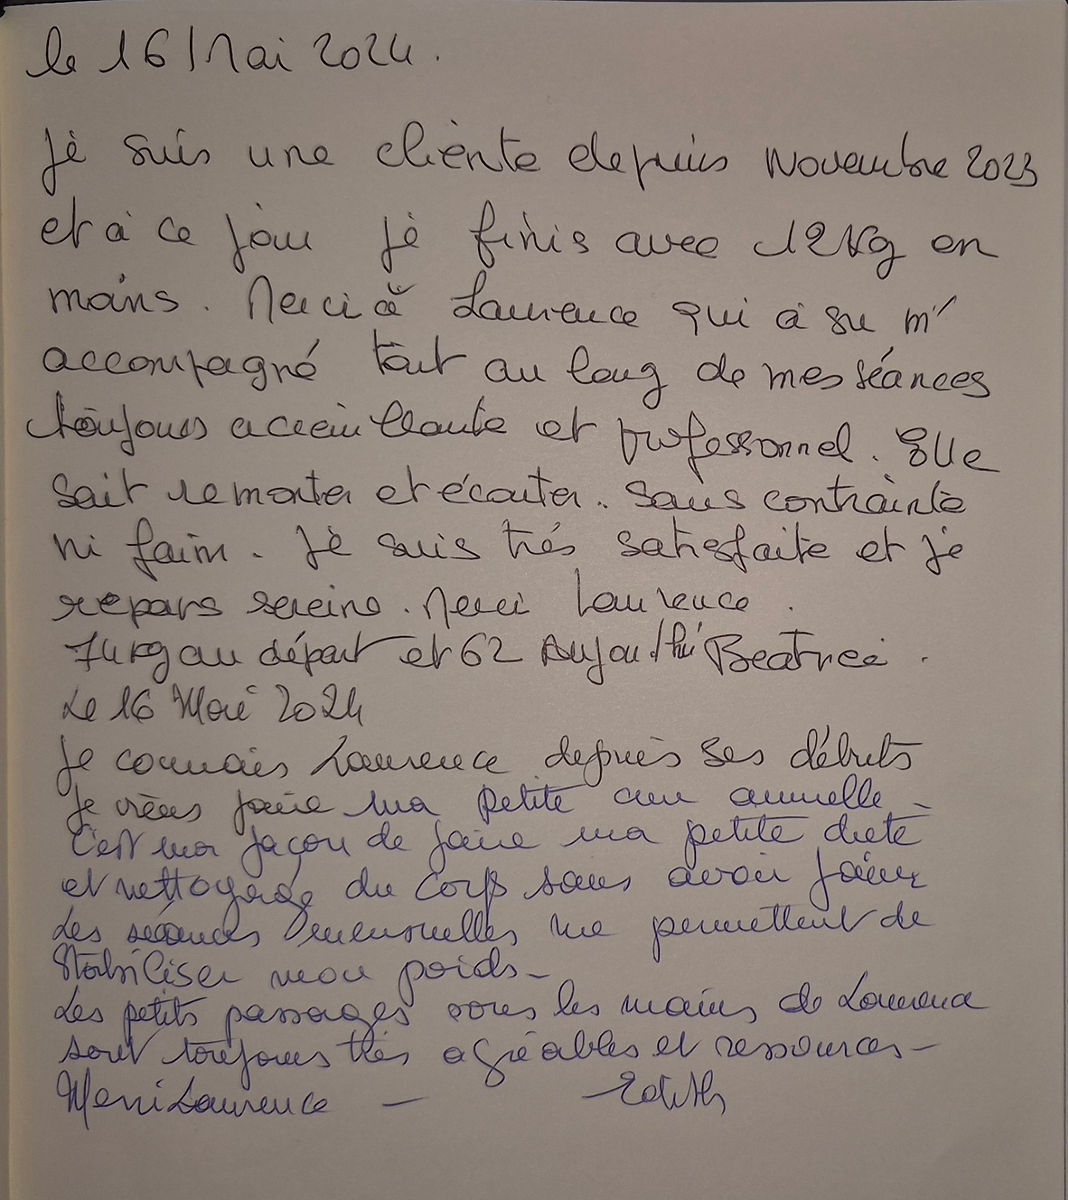 le 16 Mai 2024.
je suis une cliente depuis novembre 2023
et à ce jour je finis avec 12 kg en
moins. Merci à Laurence qui à su m'
accompagné tout au long de mes séances
toujours accueillante et professionnel. Elle
sait remonter et écouter. Sans contrainte
ni faim. Je suis très satisfaite et je
repars sereine. Merci Laurence.
74kg au départ et 62 Aujourd'hui Beatrice.
Le 16 Mai 2024
Je connais Laurence depuis ses débuts
Je viens faire ma petite cure annuelle -
C'est ma façon de faire ma petite diete
et nettoyage du corps sans avoir faim
Les séances mensuelles me permettent de
stabiliser mon poids -
Les petits passages sous les mains de Laurence
sont toujours très agréables et ressources -
Merci Laurence - Edith